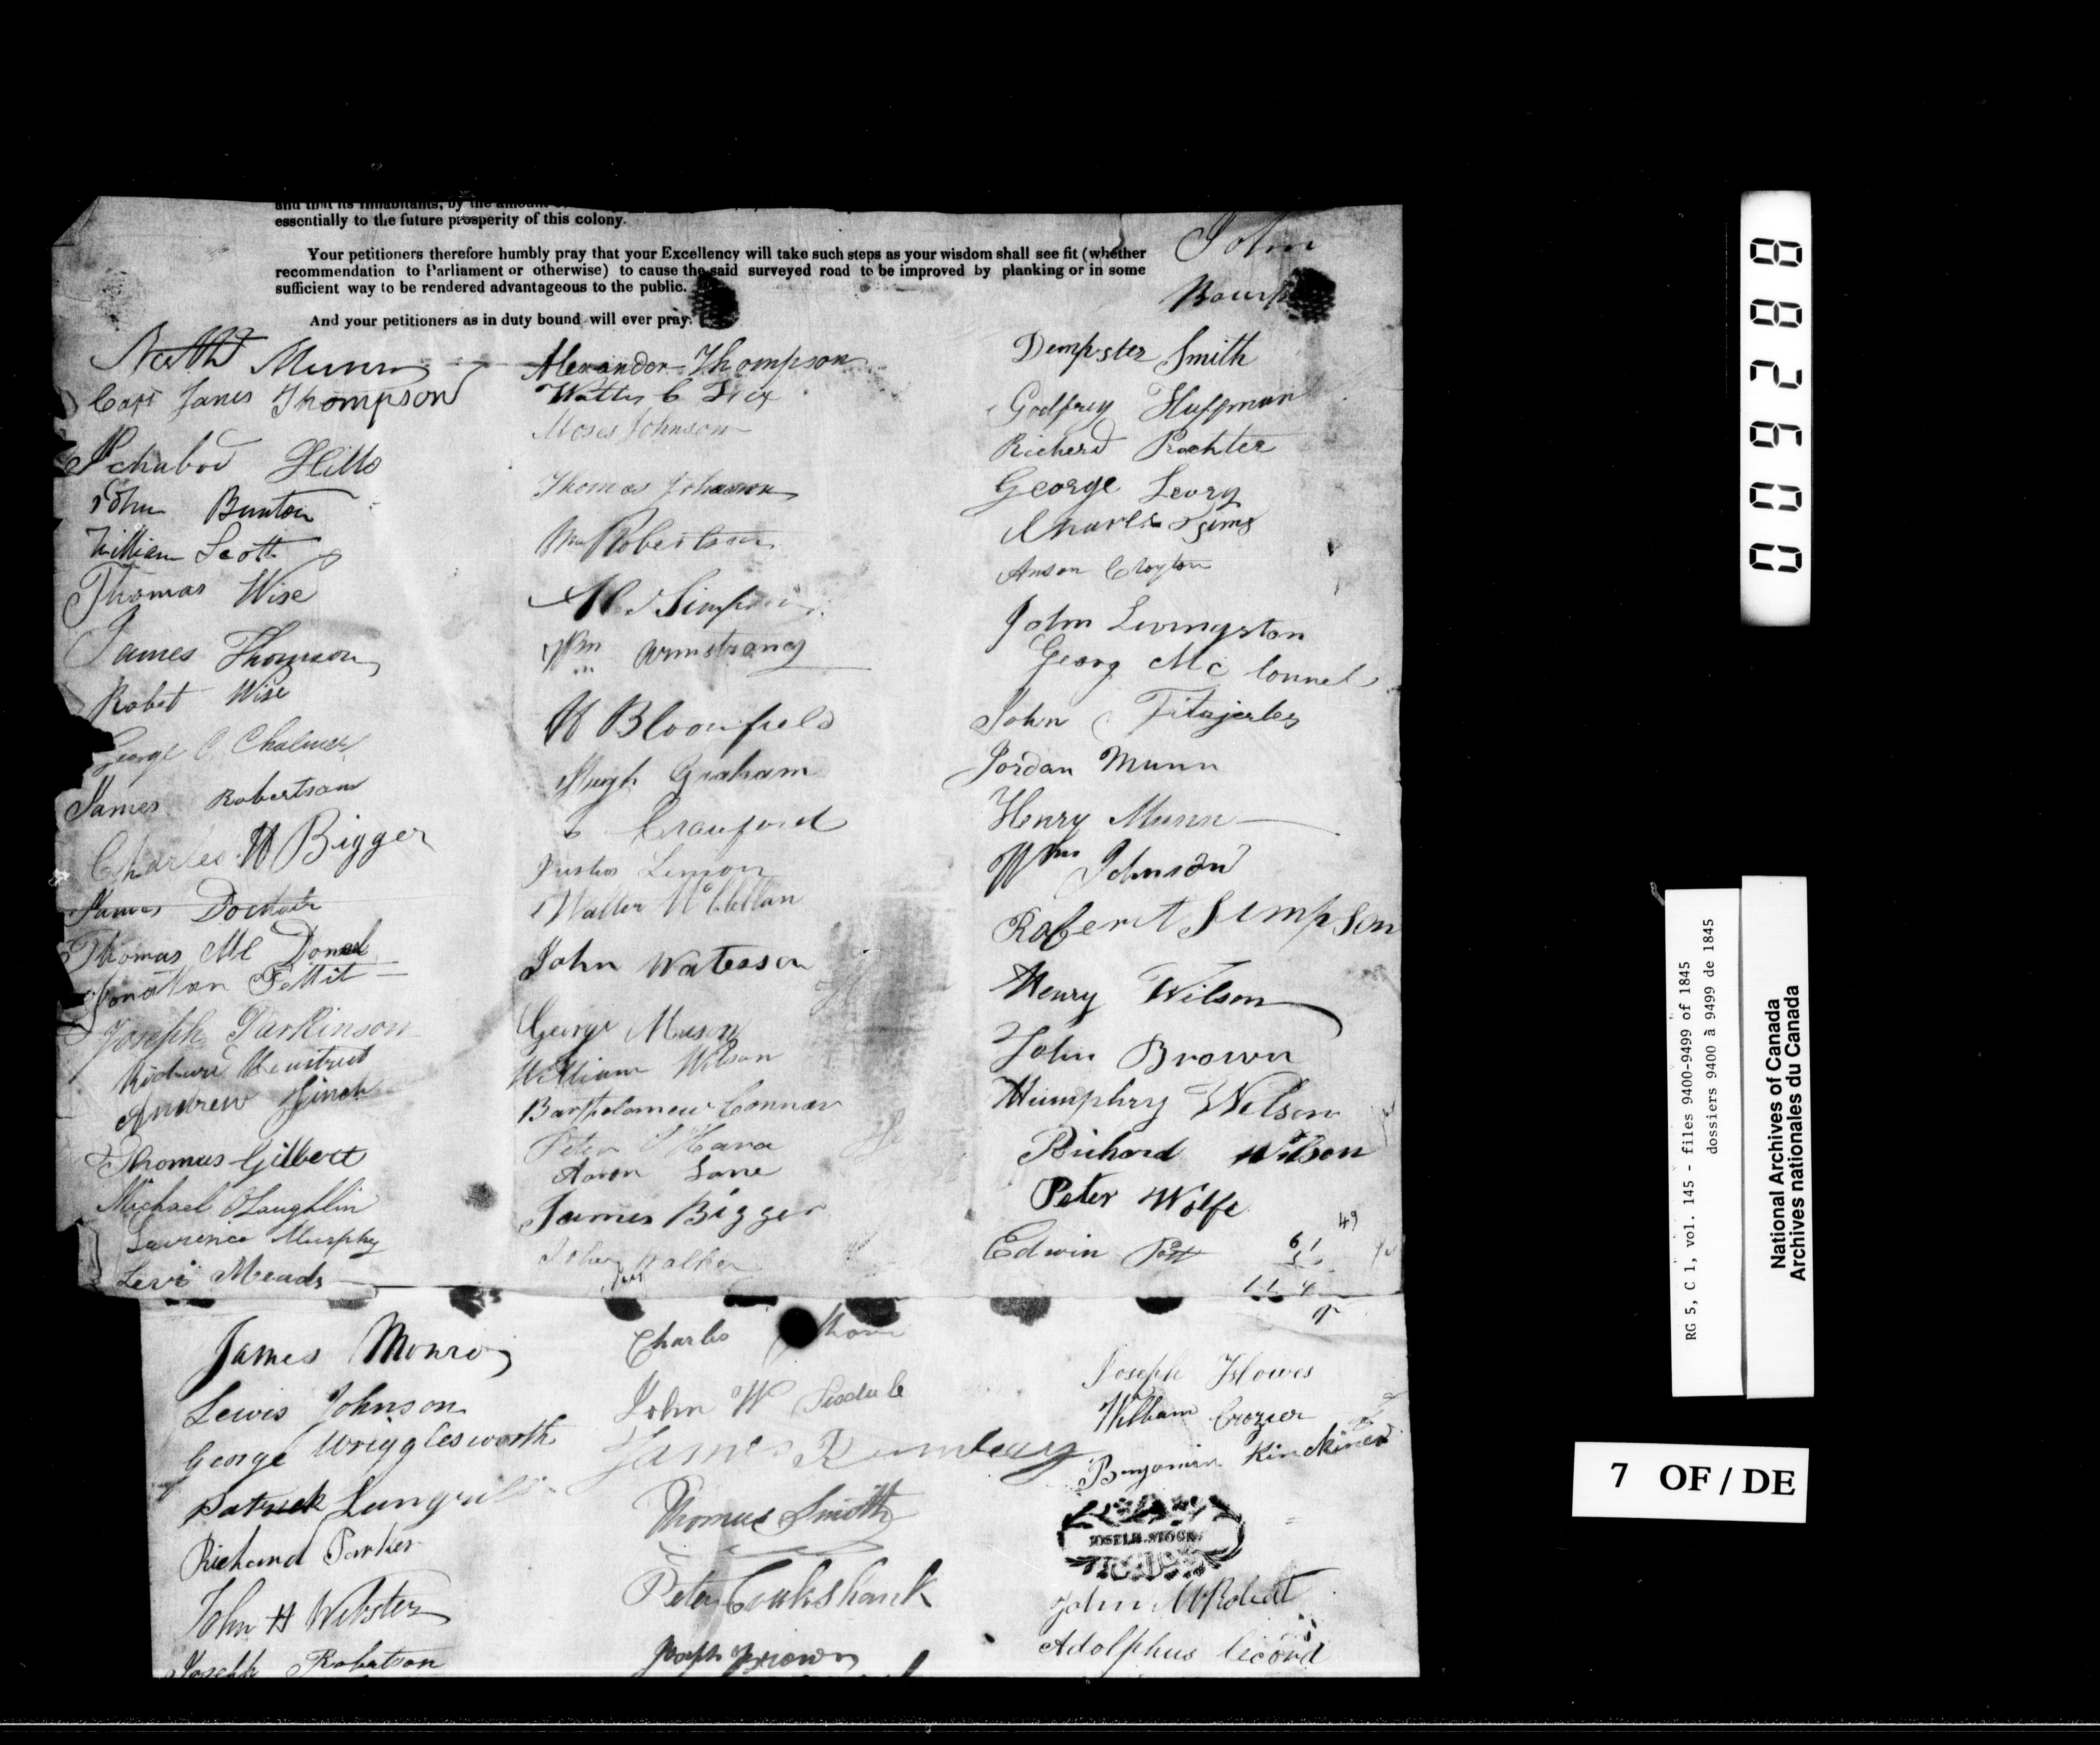 essentially to the future prosperity of this colony.
Your petitioners therefore humbly pray that your Excellency will take such steps as your wisdom shall see fit (whether
recommendation to Parliament or otherwise) to cause the said surveyed road to be improved by planking or in some
sufficient way to be rendered advantageous to the public.
And your petitioners as in duty bound will ever pray.
Munn
Capt James Thompson
Ichabod Hills
John Bunton
William Scott
Thomas Wise
James Thomson
Robet Wise
George C Chalmers
James Robertson
Charles W Bigger
James
Thomas Mc Donal
Jonathan Pettit
Joseph Parkinson
Richard
Andrew Finch
Thomas Gilbert
Michael O'Laughlin
Laurence Murphy
Levi Meads
Alexander Thompson
Walter C
Moses Johnson
Thomas Johnson
Wm Robertson
Simpson
Wm Armstrong
W Bloomfield
Hugh Graham
Crauford
Justus Lemon
Walter McClellan
John Watesson
George Mason
William Wilson
Bartholomew Connor
Peter O'Hara
Aaron Lane
James Bigger
John Walker
John
Dempster Smith
Godfrey Huffman
Richerd Rochter
George Leory
Charles Syms
Anson Croyton
John Livingston
Georg Mc Connel
John Fitzjerles
Jordan Munn
Henry Munn
Wm Johnson
Robert Simpson
Henry Wilson
John Brown
Humphry Wilson
Richard Wilson
Peter Wolfe
Edwin Post
49
61
114
James Monro
Lewis Johnson
George Wrigglesworth
Patrick
Richard Parker
John H Webster
Joseph Robertson
Charles
John W
James
Thomas Smith
Peter Cruikshank
Joseph Brown
Joseph Howes
William Crozier
Benjamin
JOSEPH STOCK
John
Adolphus Secord
009288
RG 5, C 1, vol. 145 - files 9400-9499 of 1845
dossiers 9400 à 9499 de 1845
National Archives of Canada
Archives nationales du Canada
7 OF / DE